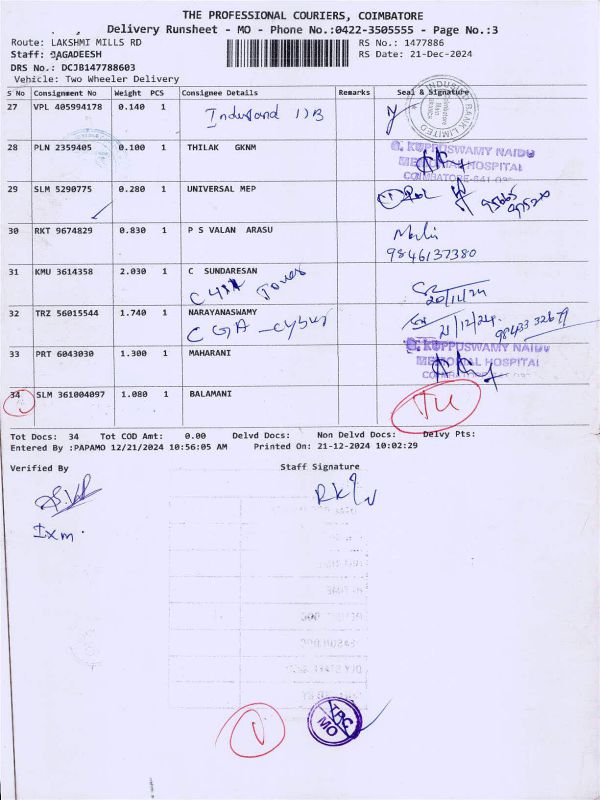 THE PROFESSIONAL COURIERS, COIMBATORE
Delivery Runsheet - MO - Phone No.:0422-3505555 - Page No.:3
Route: LAKSHMI MILLS RD RS No.: 1477886
Staff: JAGADEESH RS Date: 21-Dec-2024
DRS No.: DCJB147788603
Vehicle: Two Wheeler Delivery
S No Consignment No Weight PCS Consignee Details Remarks Seal & Signature
27 VPL 405994178 0.140 1
28 PLN 2359405 0.100 1 THILAK GKNM
G. KUPPUSWAMY NAIDU
MEMORIAL HOSPITAL
29 SLM 5290775 0.280 1 UNIVERSAL MEP
30 RKT 9674829 0.830 1 P S VALAN ARASU
9846137380
31 KMU 3614358 2.030 1 C SUNDARESAN
32 TRZ 56015544 1.740 1 NARAYANASWAMY
21/12/24
G. KUPPUSWAMY NAIDU
MEMORIAL HOSPITAL
33 PRT 6043030 1.300 1 MAHARANI
34 SLM 361004097 1.080 1 BALAMANI
Tot Docs: 34 Tot COD Amt: 0.00 Delvd Docs: Non Delvd Docs: Delvy Pts:
Entered By :PAPAMO 12/21/2024 10:56:05 AM Printed On: 21-12-2024 10:02:29
Verified By Staff Signature
TPC
MO